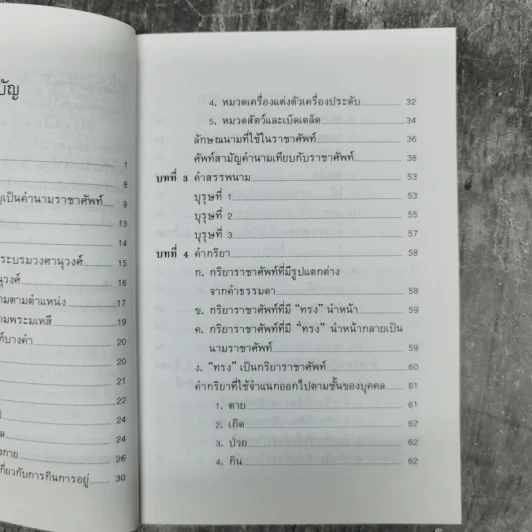 บัญ
1
8
ญเป็นคำนามราชาศัพท์ 9
13
14
ระบรมวงศานุวงศ์ 15
นุวงศ์ 16
ามตามตำแหน่ง 17
ามพระมเหสี 19
ท์บางคำ 20
20
21
22
24
ล 24
งกาย 26
กี่ยวกับการกินการอยู่ 30
4. หมวดเครื่องแต่งตัวเครื่องประดับ 32
5. หมวดสัตว์และเบ็ดเตล็ด 34
ลักษณนามที่ใช้ในราชาศัพท์ 36
ศัพท์สามัญคำนามเทียบกับราชาศัพท์ 38
บทที่ 3 คำสรรพนาม 53
บุรุษที่ 1 53
บุรุษที่ 2 55
บุรุษที่ 3 57
บทที่ 4 คำกริยา 58
ก. กริยาราชาศัพท์ที่มีรูปแตกต่าง
จากคำธรรมดา 58
ข. กริยาราชาศัพท์ที่มี "ทรง" นำหน้า 59
ค. กริยาราชาศัพท์ที่มี "ทรง" นำหน้ากลายเป็น
นามราชาศัพท์ 59
ง. "ทรง" เป็นกริยาราชาศัพท์ 60
คำกริยาที่ใช้จำแนกออกไปตามชั้นของบุคคล 61
1. ตาย 61
2. เกิด 62
3. ป่วย 62
4. กิน 62